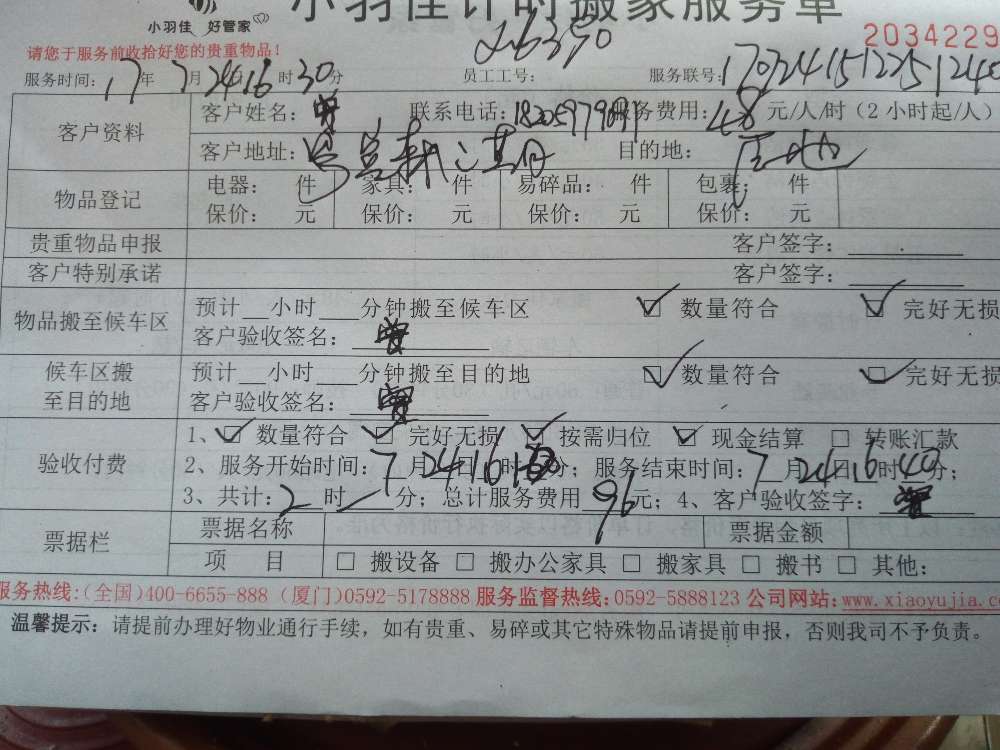 小羽佳 好管家
小羽佳计时搬家服务单
2034229
请您于服务前收拾好您的贵重物品！
服务时间：17年7月24 16时30分 员工工号： 26390 服务联号：1707241512251240
客户资料 客户姓名： 联系电话： 服务费用：48元/人/时（2小时起/人）
客户地址： 目的地：
物品登记 电器： 件 家具： 件 易碎品： 件 包裹： 件
保价： 元 保价： 元 保价： 元 保价： 元
贵重物品申报 客户签字：
客户特别承诺 客户签字：
物品搬至候车区 预计__小时___分钟搬至候车区 ☑ 数量符合 ☑ 完好无损
客户验收签名：
候车区搬至目的地 预计__小时___分钟搬至目的地 ☑ 数量符合 ☑ 完好无损
客户验收签名：
验收付费 1、☑ 数量符合 ☑ 完好无损 ☑ 按需归位 ☑ 现金结算 □ 转账汇款
2、服务开始时间：7月24日16时 分；服务结束时间：7月24日16时40分；
3、共计：2时 分；总计服务费用96元；4、客户验收签字：
票据栏 票据名称 票据金额
项 目 □ 搬设备 □ 搬办公家具 □ 搬家具 □ 搬书 □ 其他：
服务热线:(全国)400-6655-888 (厦门)0592-5178888 服务监督热线:0592-5888123 公司网站:www.xiaoyujia.co
温馨提示：请提前办理好物业通行手续，如有贵重、易碎或其它特殊物品请提前申报，否则我司不予负责。